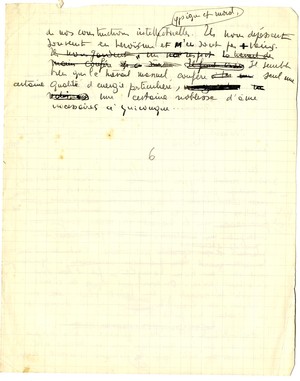 physique et moral
de nos constructions intellectuelles. Ils nous dépassent
souvent en héroïsme et n'en sont pas + fiers.
Il semble
bien que le travail manuel, confère seul une
certaine qualité d'énergie particulière,
une certaine noblesse d'âme
nécessaires à quiconque
6